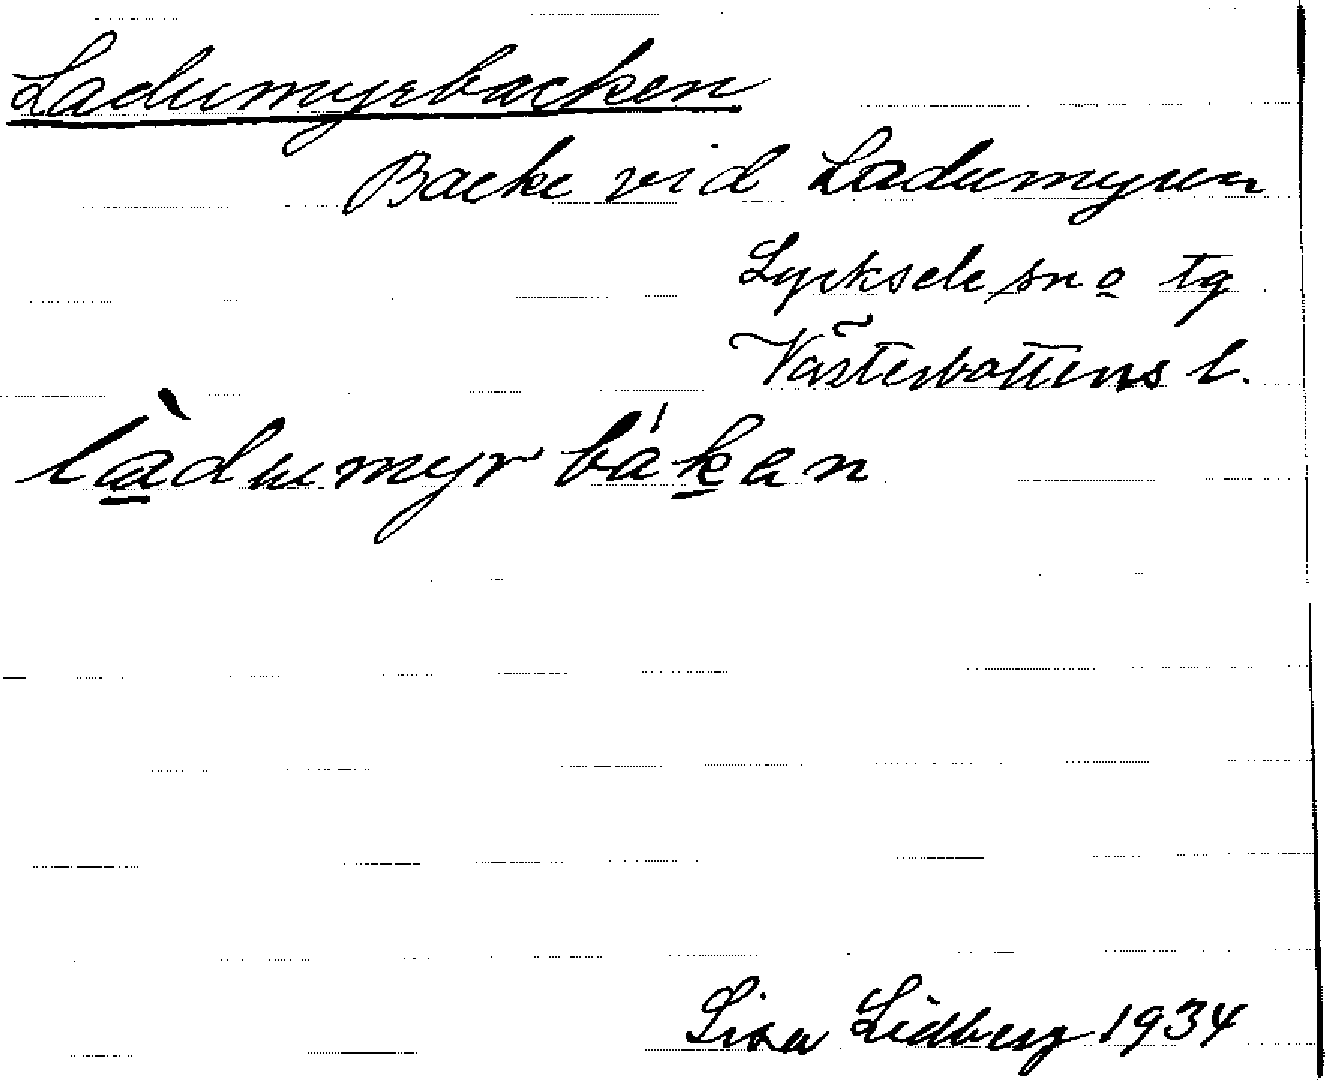 Ladumyrbacken
Backe vid Ladumyren
Lycksele sn o tg
Västerbottens l.
làdumyrbákan
Lisa Lidberg 1934